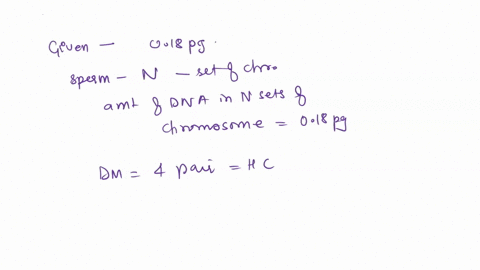 Given — 0.18 pg.
sperm — N — set of chro.
amt of DNA in N sets of
chromosome = 0.18 pg
DM = 4 pair = HC